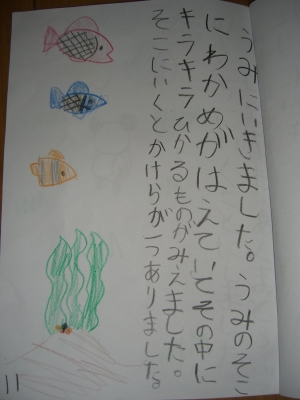 うみにいきました。うみのそこ
にわかめがはえていてその中に
キラキラひかるものがみえました。
そこにいくとかけらが一つありました。
11